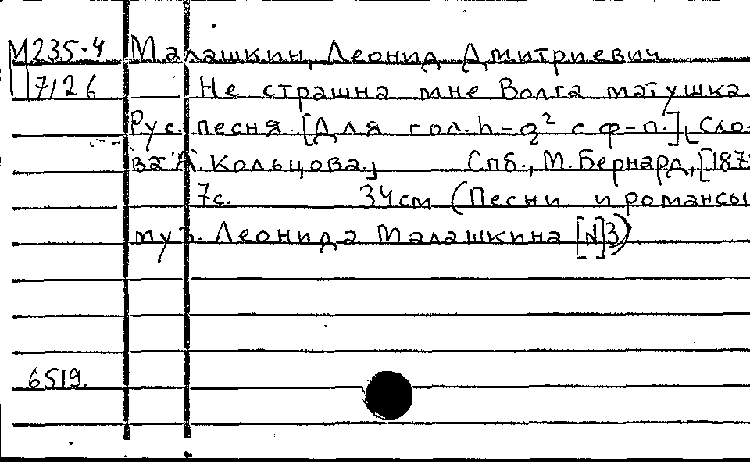 М235-4 Малашкин, Леонид Дмитриевич
7/26 Не страшна мне Волга матушка.
Рус. песня. [Для гол. h-g² с ф-п.], Сло-
ва А. Кольцова. Спб., М. Бернард, [187
7с. 34см (Песни и романсы
муз. Леонида Малашкина [N]3).
6519.